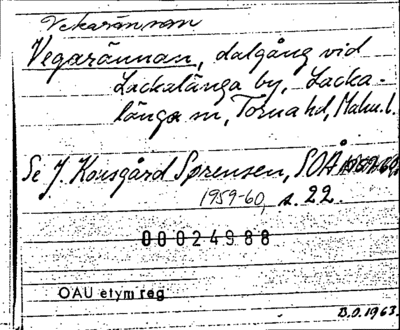 Vekarännan
Vegarännan, dalgång vid
Lackalänga by, Lacka-
länga sn, Torna hd, Malm. l.
Se J. Kousgård Sørensen, SOÅ
1959-60, s. 22.
00024988
OAU etym reg
B.O. 1963.